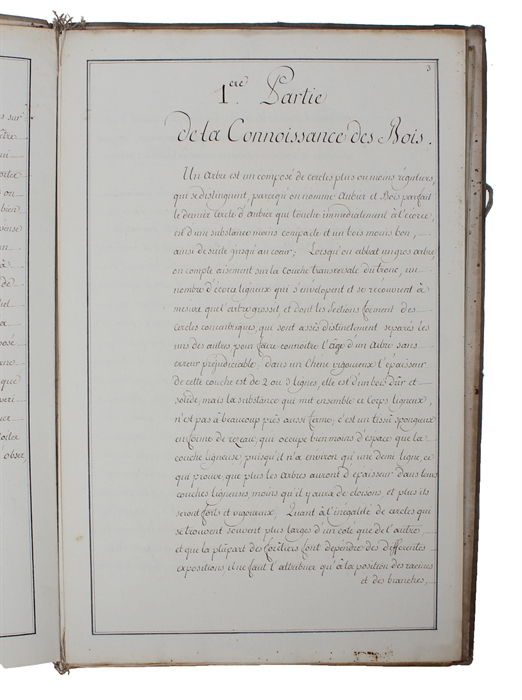 s sur
être
ui
on
bien
ense
un
à
de
el
a
posé
ane
que
veri
uer
obser,
3
1.ere Partie
de la Connoissance des Bois.
Un Arbre est un composé de cercles plus ou moins réguliers
qui se destinguent, par ce qu'on nomme Aubier et Bois parfait
le dernier Cercle d'Aubier qui touche immediatement à l'ecorce,
est d'un substance moins compacte et un bois moins bon,
ainsi de suite jusqu'au coeur; Lorsqu'on abbat un gros arbre
on compte aisement sur la Couche transversale du tronc, un
nombre d'écorce ligneux qui s'envelopent et se récouvrent à
mesure que l'arbre grossit et dont les Sections forment des
Cercles concentreques, qui sont assés distinctement separés les
uns des autres pour faire connoitre l'âge d'un Arbre sans
erreur préjudiciable, dans un Chene vigoureux l'épaisseur
de cette couche est de 2 ou 3 lignes, elle est d'un bois dûr et
solide, mais la substance qui unit ensemble ce Corps ligneux,
n'est pas à beaucoup près aussi ferme, c'est un tissû spongieux
en forme de rezeau, qui occupe bien moins d'espace que la
couche ligneuse, puisqu'il n'a environ qu'une demi ligne, ce
qui prouve que plus les Arbres auront d'épaisseur dans leurs
couches ligneuses, moins qu'il y aura de cloisons et plus ils
seront forts et vigoureux, Quant à l'inégalité de cercles qui
se trouvent souvent plus larges d'un coté que de l'autre,
et que la plûpart des forêtiers font dependre des differentes
expositions il ne faut l'attribuer qu'à la position des racines
et des branches,